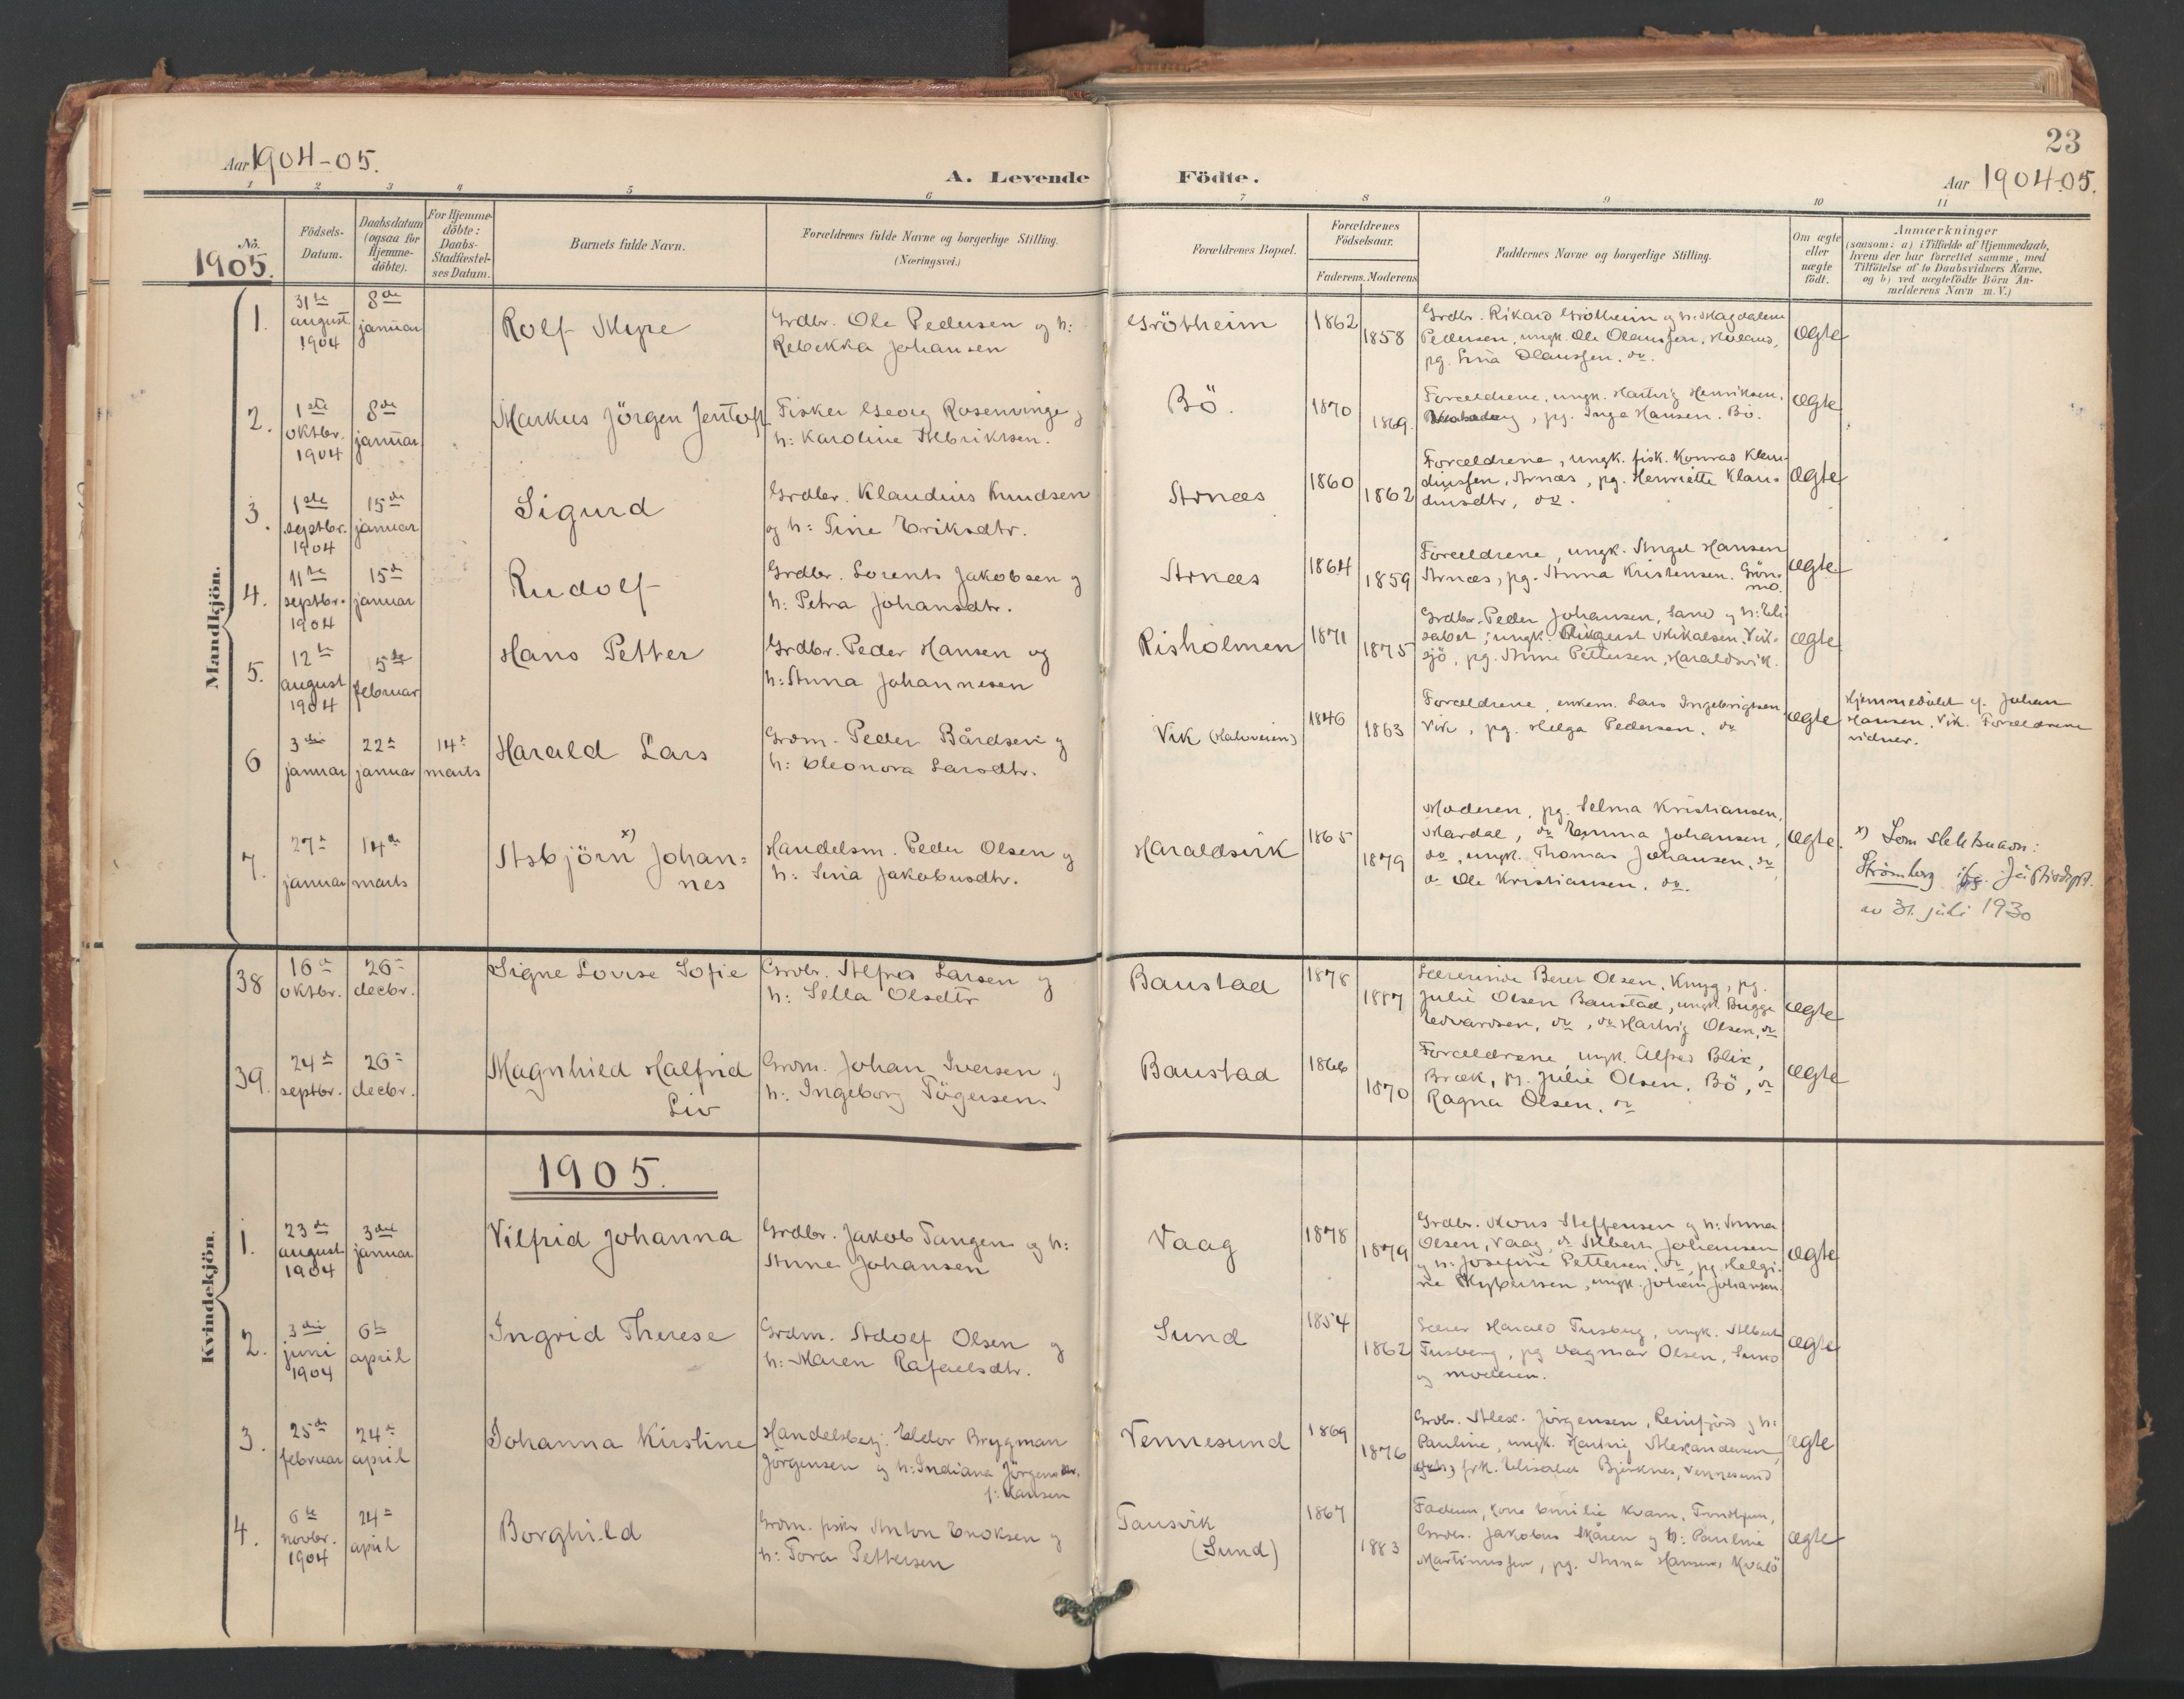 23
Aar 1904-05.
A. Levende Födte.
Aar 1904-05.
1 2 3 4 5 6 7 8 9 10 11
No.
1905.
Födsels-
Datum.
Daabsdatum
(ogsaa for
Hjemme-
döbte).
For Hjemme-
döbte:
Daabs-
Stadfæstel-
ses Datum.
Barnets fulde Navn.
Forældrenes fulde Navne og borgerlige Stilling.
(Næringsvei.)
Forældrenes Bopæl.
Forældrenes
Födselsaar.
Faderens. Moderens
Faddernes Navne og borgerlige Stilling.
Om ægte
eller
uægte
födt.
Anmærkninger
(saasom: a) i Tilfælde af Hjemmedaab,
hvem der har forrettet samme, med
Tilföielse af to Daabsvidners Navne,
og b) ved uægtefödte Börn An-
melderens Navn m. V.)
Mandkjön.
1.
31te
august
1904
8de
januar
Rolf Myre
Grdbr. Ole Pedersen og h:
Rebekka Johansen
Grötheim
1862
1858
Grdbr. Rikard Grötheim og h: Magdalena
Pedersen, ungk. Ole Olaussen,
pg. Lina Olaussen. do.
ægte
2.
1ste
oktbr.
1904
8de
januar
Markus Jörgen Jentoft
Fisker Georg Rosenvinge og
h: Karoline Albriktsen.
Bö.
1870
1869.
Forældrene, ungk. Hartvig Henriksen,
pg. Inga Hansen. Bö.
ægte
3.
1ste
septbr.
1904
15de
januar
Sigurd
Grdbr. Klaudius Knudsen
og h: Tine Eriksdtr.
Arnæs
1860
1862
Forældrene, ungk. fisk. Konrad Klau-
diussen, Arnæs, pg. Henriette Klau-
diusdtr, do.
ægte
4.
11te
septbr.
1904
15de
januar
Rudolf
Grdbr. Lorents Jakobsen og
h: Petra Johansdtr.
Arnæs
1864
1859
Forældrene, ungk. Angel Hansen
Arnæs, pg. Anna Kristensen. Grön-
mo.
ægte
5.
12te
august
1904
5te
februar
Hans Petter
Grdbr. Peder Hansen og
h: Anna Johannesen
Risholmen
1871
1875
Grdbr. Peder Johansen, Sand og h: Eli-
sabet, ungk. Mikalsen. Vik-
sjö, pg. Anne Pettersen, Haraldsvik.
ægte
6
3die
januar
22de
januar
14de
marts
Harald Lars
Grdm. Peder Bårdsen og
h: Eleonora Larsdtr.
Vik
1846
1863
Forældrene, enkem. Lars Ingebrigtsen
Vik, pg. Helga Pedersen. do
ægte
Hjemmedöbt af Johan
Hansen, Vik. Forældrene
vidner.
7.
27de
januar
14de
marts
Asbjörn x) Johan=
nes
Handelsm. Peder Olsen og
h: Lina Jakobusdtr.
Haraldsvik
1865
1879
Moderen, pg. Selma Kristiansen,
Mardal, do Emma Johansen,
do, ungk. Thomas Johansen, do,
do Ole Kristiansen. do.
ægte.
x) Som slektsnavn:
Strömberg ifg. Justisdept.
av 31. juli 1930
38
16de
oktbr.
26de
decbr.
Signe Lovise Sofie
Grdbr. Alfred Larsen og
h: Sella Olsdtr
Baustad
1878
1887
Lærerinde Beret Olsen, Knyg, pg.
Julie Olsen Baustad, ungk. Bugge
Edvardsen, do, do Hartvig Olsen, do
ægte
39.
24de
septbr.
26de
decbr.
Magnhild Halfrid
Liv
Grdm. Johan Iversen og
h: Ingeborg Tögersen
Baustad
1866
1870
Forældrene, ungk. Alfred Blix,
Bræk, pg. Julie Olsen. Bö, do
Ragna Olsen. do
ægte
Kvindekjön.
1905.
1.
23de
august
1904
3die
januar
Vilfrid Johanna
Grdbr. Jakob Tangen og h:
Anne Johansen
Vaag
1878
1879
Grdbr. Mons Steffensen og h: Anna
Olsen, Vaag, do Albert Johansen
og h: Josefine Pettersen, do, pg. Helgi-
ne, ungk. Johan Johansen.
ægte
2.
3die
juni
1904
6te
april
Ingrid Therese
Grdm. Adolf Olsen og
h: Maren Rafaelsdtr.
Sund
1854
1862
Lærer Harald Tusberg, ungk. Albert
Tusberg, pg Dagmar Olsen, Sund
og moderen.
ægte
3.
25de
februar
24de
april
Johanna Kirstine
Handelsbetj. Eldor Brygman
Jörgensen og h: Indiana Jörgensdtr.
f: Hansen
Vennesund
1869
1876
Grdbr. Alex. Jörgensen, Reinfjord og h:
Pauline, ungk. Hartvig Alexandersen,
frk. Elisabet Bjerknes, Vennesund
ægte
4.
6te
novbr.
1904
24de
april
Borghild
Grdm. fisk. Anton Enoksen og
h: Tora Pettersen
Tausvik
(Sund)
1867
1883
Faderen, kone Emilie Kvam, Trondhjem,
Grdbr. Jakobus Skåren og h: Pauline
Martinussen, pg. Anna Hansen, Kvalö
ægte